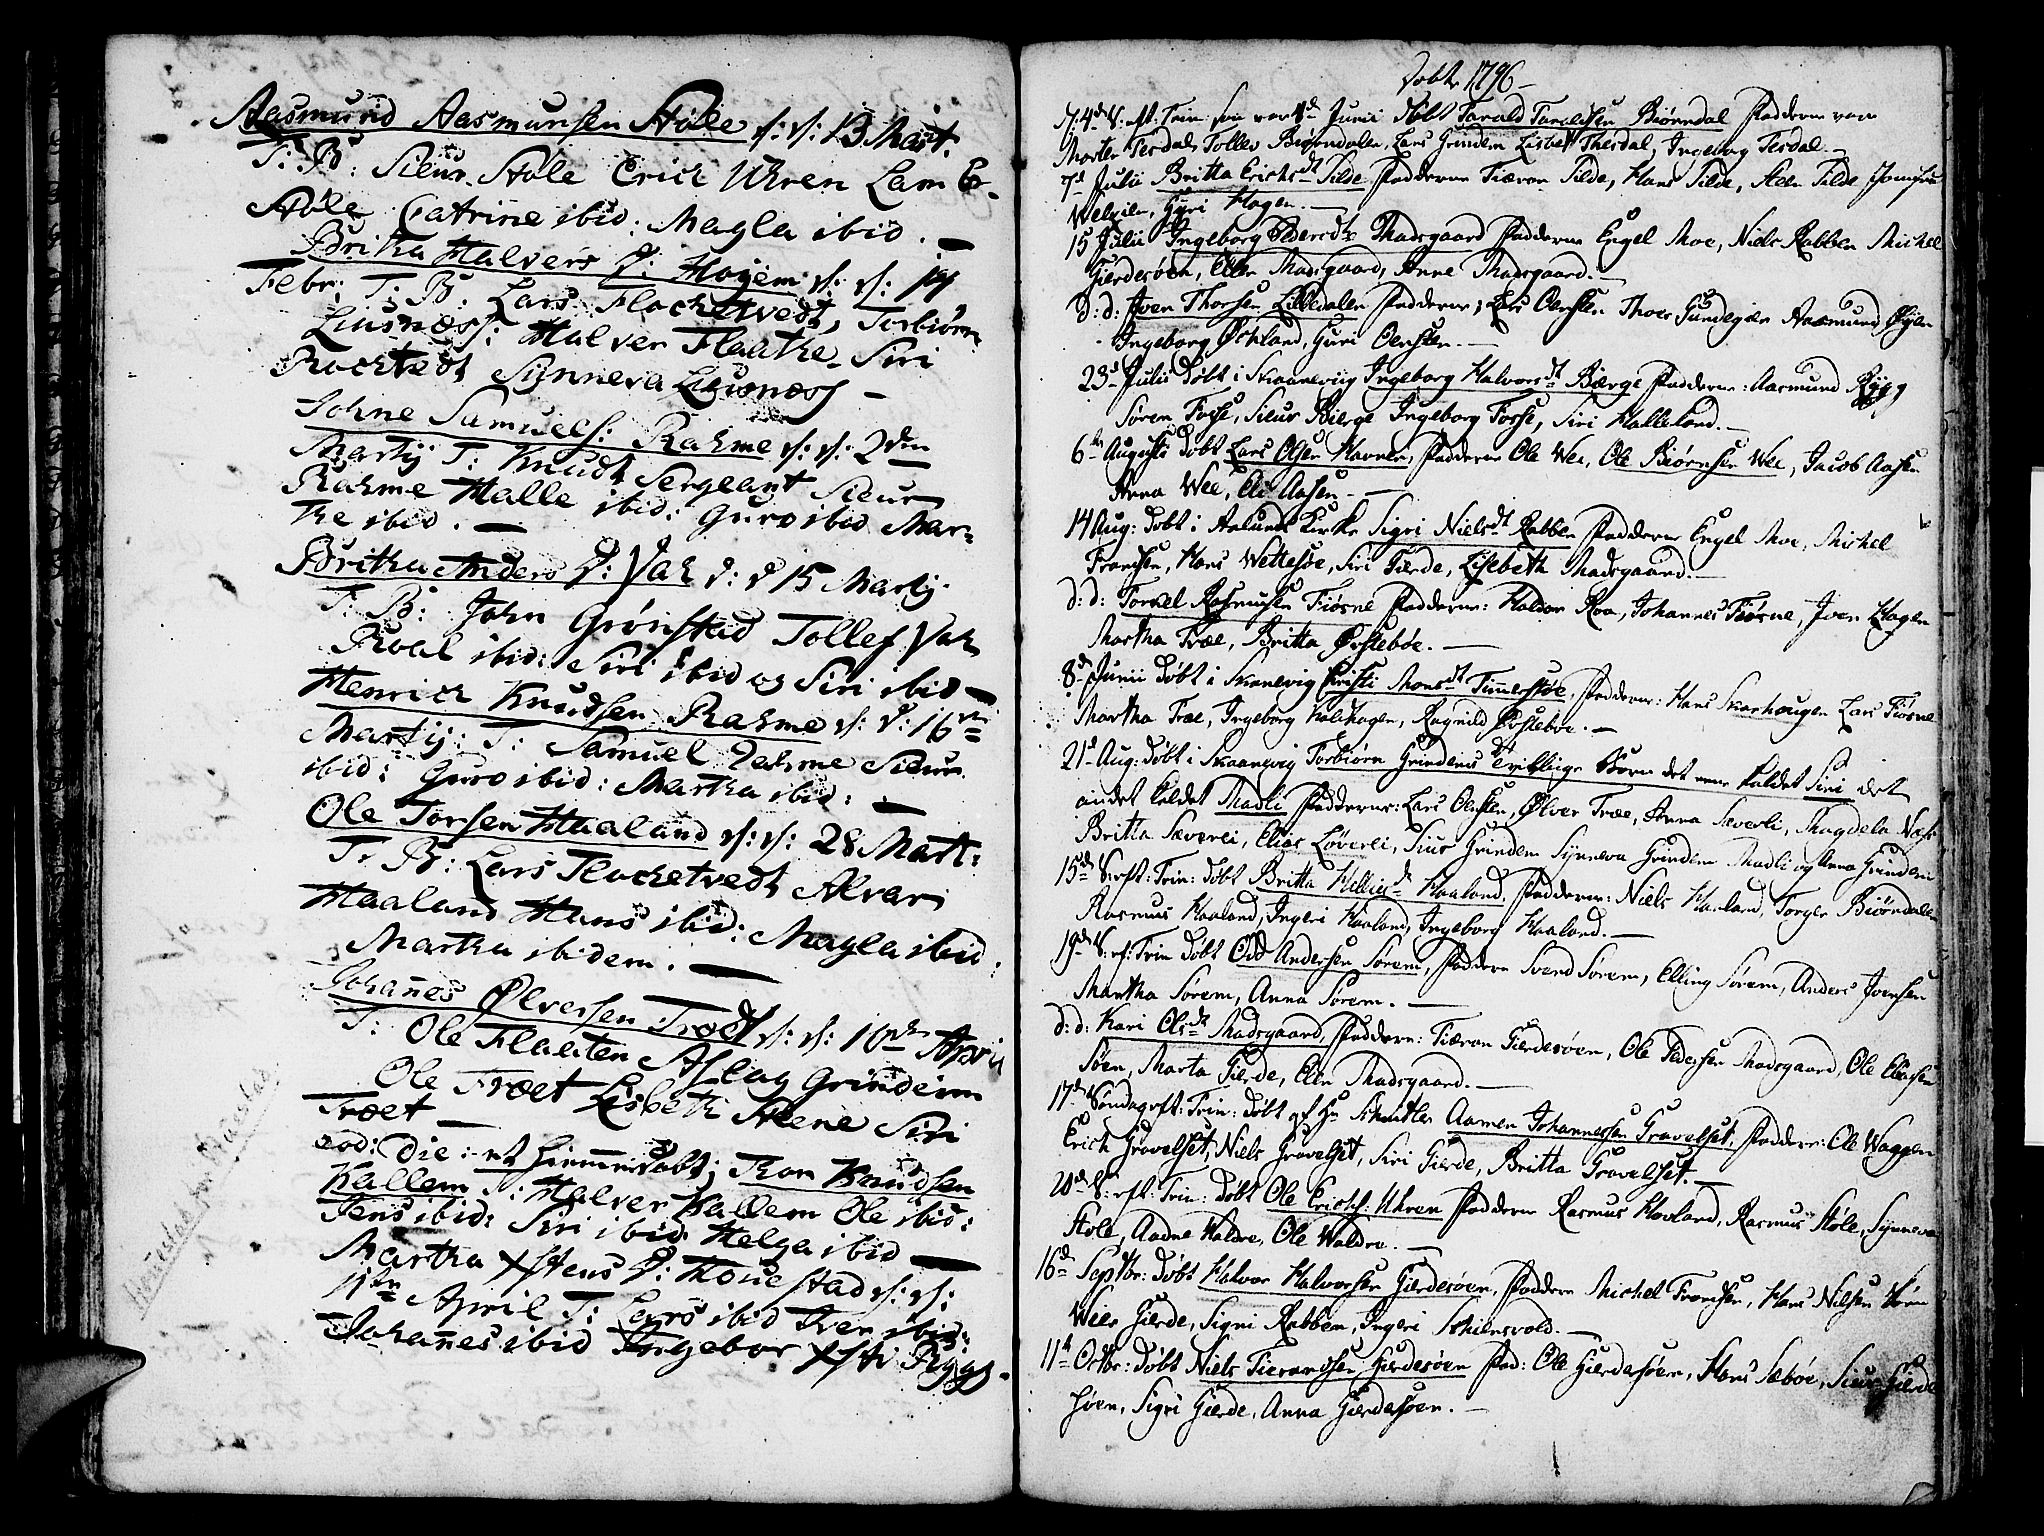 Aasmund Aasmunsen Støle d: d: 13 Mart.
T: B: Sieur Støle Erich Uhren Lam Er-
Støle Catrine ibid: Magla ibid. —
Britha Halvers D: Hogem: d: d: 14
Febr: T: B: Lars Flochetvedt, Torbiørn
Liusnæss: Halver Flaathe Siri
Rochtedt Synneva Liusnæss —
Johne Samuels: Rahme d: d: 2den
Martij T: Knudt Sergeant Sieur
Rahme Halle ibid: Guro ibid Mar-
the ibid. —
Britha Anders D: Vah d: d 15 Martij
T: B: John Grønstad Tollef Vah
Roal ibid: Siri ibid og Siri ibid —
Henrich Knudsen Rahme d: d: 16
Martij: T: Samuel Rahme Sieur
ibid: Guro ibid: Martha ibid: —
Ole Torsen Haaland d: d: 28 Mart:
T: B: Lars Flochetvedt Alvar
Haaland Hans ibid: Magla ibid.
Martha ibidem. —
Johañes Ølversen Trœdt d: d: 10de April
T: Ole Flaaten Aslag Grindeim
Ole Trœet Lisbeth Skene Siri
Trœet —
eod: die: et hiemmedøbt; Thor Knudsen
Kallem T: Halver Kallem Ole ibid:
Jens ibid: Siri ibid Helga ibid —
Martha Xstens D: Houestad d: d:
11te April T: Lars ibid Iver ibid:
Johañes ibid Ingebor Xsti Rygg.
Døbte 1796 —
4de S: eft: Trin: Junii Døbt Tarald Taraldsen Biørndal Fadderne var
Morten Tesdal, Tollev Biørndalen, Lars Grindem Lisbet Thesdal, Ingeborg Tesdal. —
7d Julii Britta Erichsdt Tilde Fadderne Tiæran Tilde, Hans Tilde, Sten Tilde
Guri Hagen. —
15 Julii Ingeborg Pedersdt Madsgaard Fadderne Engel Moe, Niels Rabben Michel
Gierdesøen, Elen Madsgaard, Anne Madsgaard. —
d: d: Joen Thorsen Lilledalen Fadderne; Lars Oensten Thoer Aasmund Øyen
Ingeborg Øchland, Guri Oensten. —
23d Julii Døbt i Skaanevig Ingeborg Halvorsdt Bierge Fadderne: Aasmund Rygg
Søren Fosse, Sieur Bierge Ingeborg Fosse, Siri Halleland. —
6te Augusti døbt Lars Olsen Havnen, Fadderne Ole Wee, Ole Biørnsen Wee, Jacob Aasen
Anna Wee, Eli Aasen. —
14 Aug: døbt i Aalunds Kirke Sigri Nielsdt Rabben Fadderne Engel Moe, Michel
Fransen, Hans Wettesøe, Siri Gierde, Lisebeth Madsgaard. —
d: d: Torkel Rasmusen Fiøsne Fadderne: Haldor Roa, Johannes Fiøsne, Joen Hagen
Martha Træe, Britta Østebøe. —
8de Junii Døbt i Skanevig Christi Monsdt Timerstøe, Fadderne: Hans Skarhaugen Lars Fiøsne
Martha Træe, Ingeborg Ragnild Østebøe. —
21d Aug: døbt i Skaanevig Torbiørn Grindems Tvillinge Børn det ene kaldet Siri det
andet kaldet Madli Fadderne: Lars Oensten, Ølver Træe, Anna Sæverli, Magdela Næs
Britta Sæverei, Elias Løverei, Siur Grindem Synneva Grindem Madli og Anna Grindem
15de S: eft: Trin: døbt Britta Haaland, Fadderne: Niels Haaland, Torger Biørndalen
Rasmus Haaland, Ingeri Haaland, Ingeborg Haaland. —
19de S: eft: Trin døbt Odd Andersen Sørem, Faddere Svend Sørem, Elling Sørem, Anders Joensen
Martha Sørem, Anna Sørem. —
d: d: Kari Olsdt Madsgaard, Faddere: Tiæran Gierdesøen, Ole Pedersen Madsgaard, Ole
Søen, Marta Gierde, Elen Madsgaard. —
17de Søndag eft: Trin: døbt af Hr Aamen Johannesen Gravelset, Faddere: Ole Waggen
Erich Gravelset, Niels Gravelset, Siri Gierde, Britta Gravelset. —
20de S: eft: Trin: døbt Ole Erichs: Uhren Fadderne Rasmus Hovland, Rasmus Støle, Synneva
Støle, Aadne Waldre, Ole Waldre. —
16de Septbr: døbt Halvor Halvorsen Gierdesøen, Faddere Michel Fransen, Hans Nilsen
Gierde, Sigri Rabben, Ingeri Schiensvold. —
11te Octbr: døbt Niels Tierandsen Gierdesøen Fad: Ole Gierdesøen, Hans Sæbøe, Sieur Gierde
søen, Sigri Gierde, Anna Gierdesøen. —